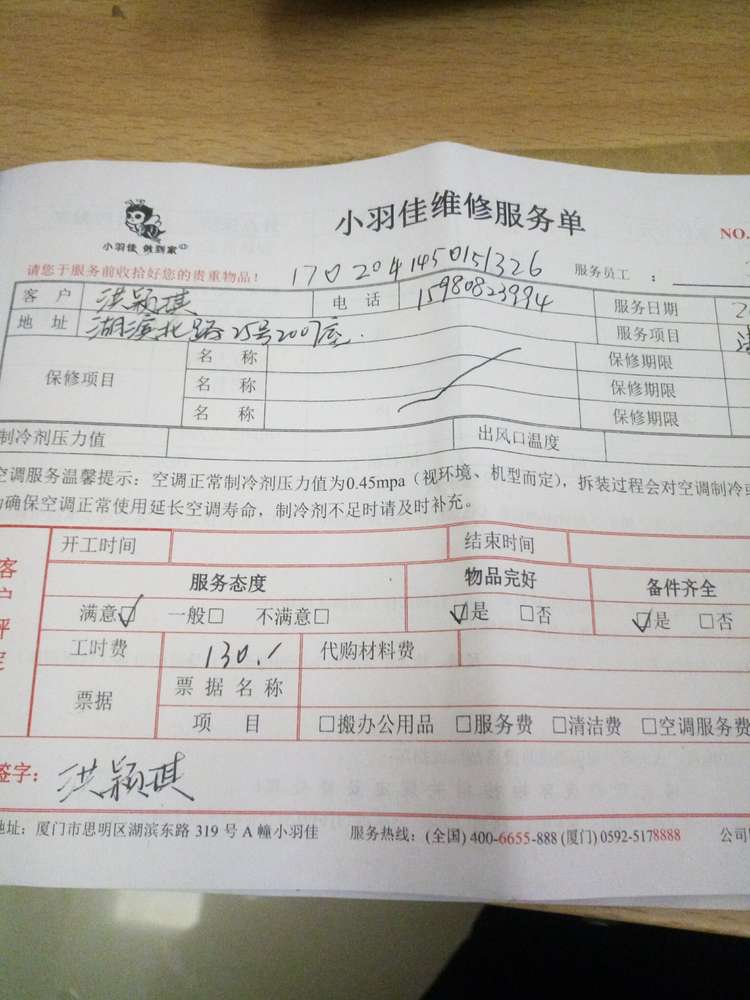 小羽佳 做到家
小羽佳维修服务单
NO.
请您于服务前收拾好您的贵重物品！
1702041450151326
服务员工：
客 户 洪颖琪 电 话 15980823994 服务日期 2
地 址 湖滨北路25号2007座 服务项目
保修项目 名 称 保修期限
名 称 保修期限
名 称 保修期限
制冷剂压力值 出风口温度
空调服务温馨提示：空调正常制冷剂压力值为0.45mpa（视环境、机型而定），拆装过程会对空调制冷
确保空调正常使用延长空调寿命，制冷剂不足时请及时补充。
客户评定
开工时间 结束时间
服务态度 物品完好 备件齐全
满意☑ 一般□ 不满意□ ☑是 □否 ☑是 □否
工时费 130. 代购材料费
票据 票 据 名 称
项 目 □搬办公用品 □服务费 □清洁费 □空调服务费
签字：洪颖琪
地址：厦门市思明区湖滨东路 319 号 A 幢小羽佳 服务热线：(全国) 400-6655-888 (厦门) 0592-5178888 公司